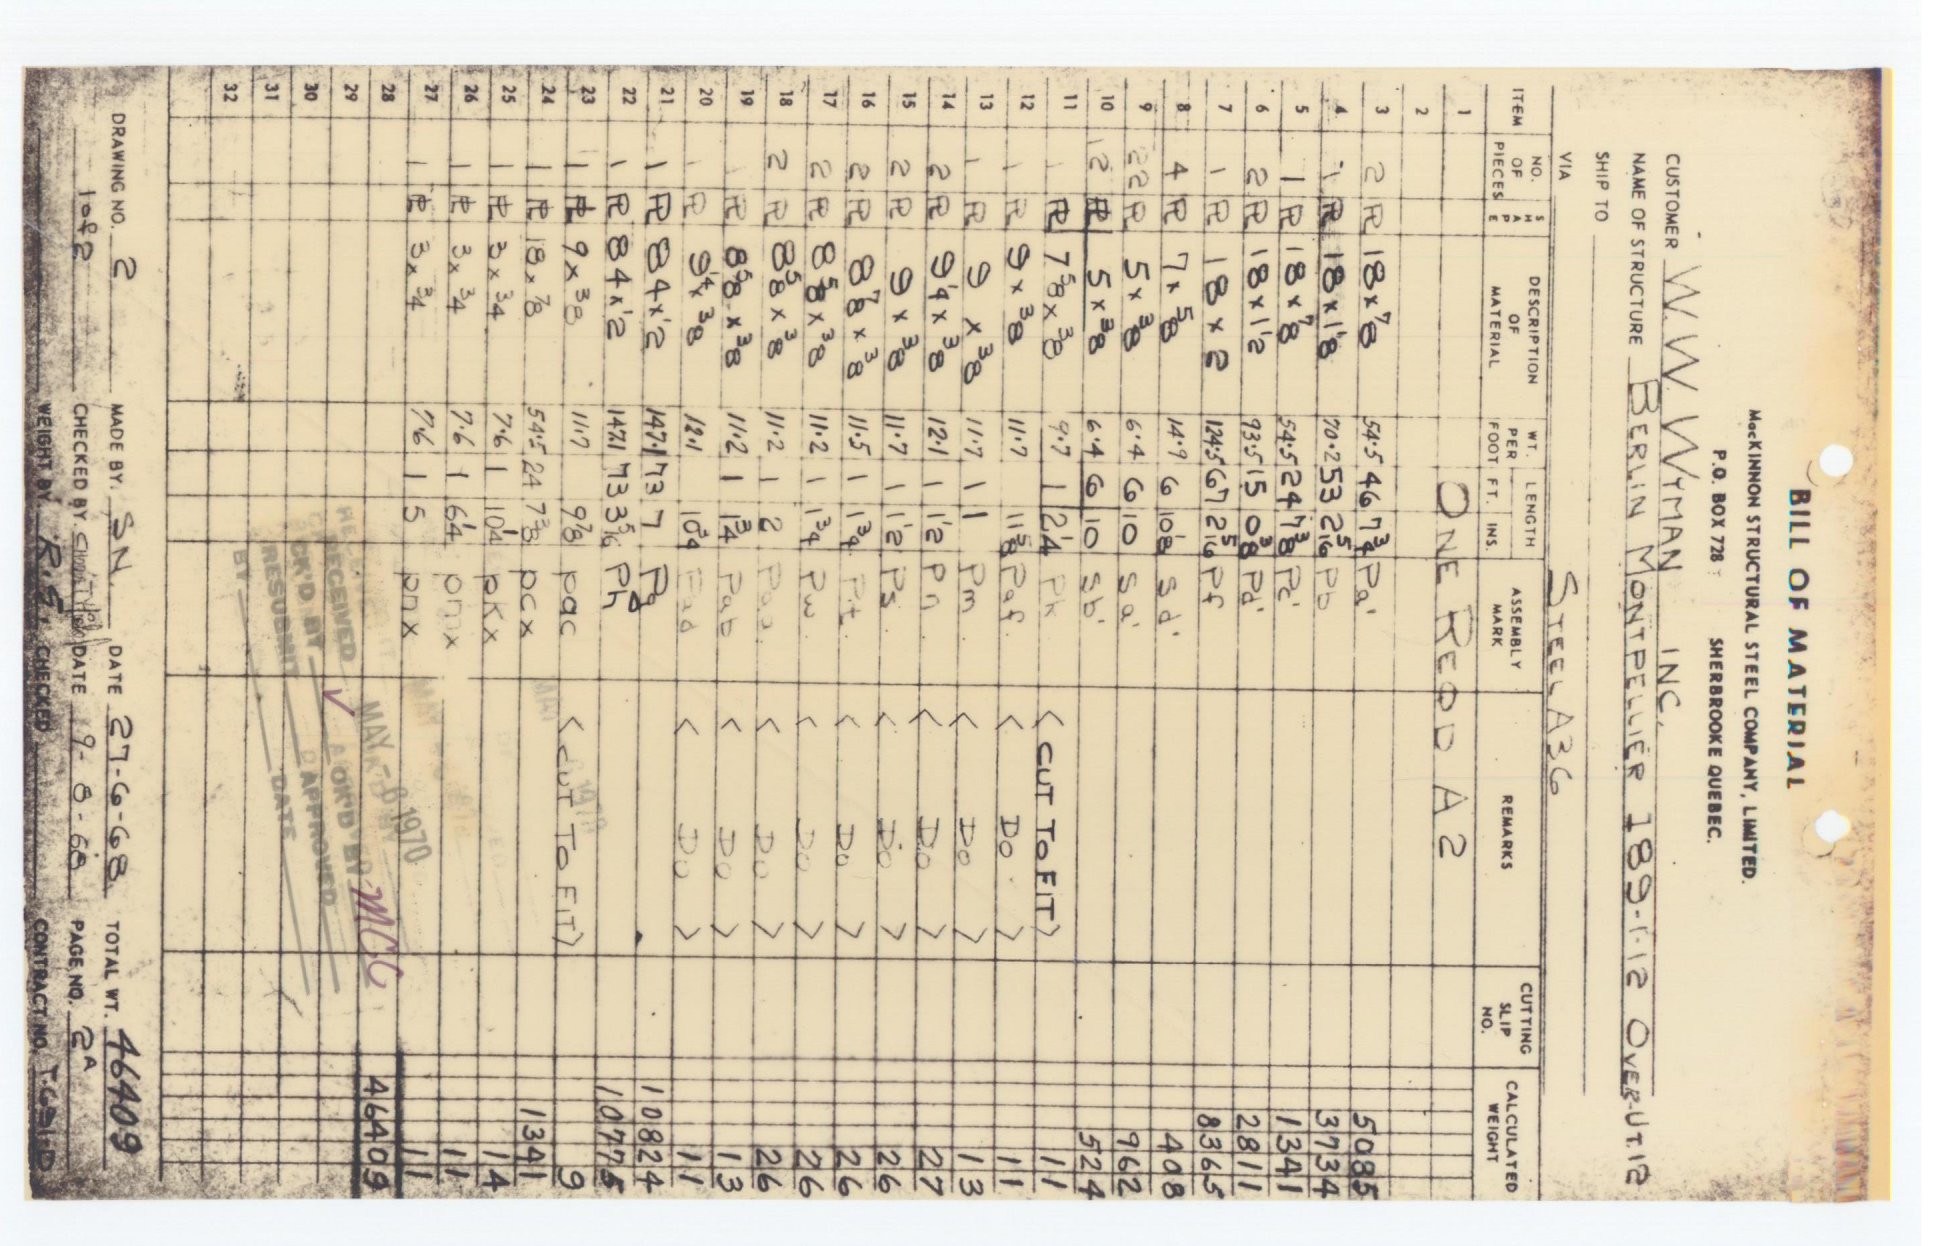 BILL OF MATERIAL
MacKINNON STRUCTURAL STEEL COMPANY, LIMITED.
P.O. BOX 728 SHERBROOKE QUEBEC.
CUSTOMER W. W. WYMAN INC.
NAME OF STRUCTURE BERLIN MONTPELLIER 189-1-12 OVER UT.12
SHIP TO
VIA STEEL A36
ITEM NO. OF PIECES SHAPE DESCRIPTION OF MATERIAL WT. PER FOOT LENGTH FT. INS. ASSEMBLY MARK REMARKS CUTTING SLIP NO. CALCULATED WEIGHT
1 ONE REQD A2
2
3 2 PL 18 x 7/8 54.5 46 7 3/4 Pa' 5085
4 1 PL 18 x 1 1/8 70.2 53 2 5/16 Pb 3734
5 1 PL 18 x 7/8 54.5 24 7 3/8 Pc' 1341
6 2 PL 18 x 1 1/2 93.5 15 0 3/8 Pd' 2811
7 1 PL 18 x 2 124.5 67 2 5/16 Pf 8365
8 4 PL 7 x 5/8 14.9 6 10 1/8 Sd' 408
9 22 PL 5 x 3/8 6.4 6 10 Sa' 962
10 12 PL 5 x 3/8 6.4 6 10 Sb' 524
11 1 PL 7 5/8 x 3/8 9.7 1 2 1/4 Pk < CUT TO FIT > 11
12 1 PL 9 x 3/8 11.7 11 3/8 Paf < DO > 11
13 1 PL 9 x 3/8 11.7 1 1 Pm < DO > 13
14 2 PL 9 1/4 x 3/8 12.1 1 1 1/2 Pn < DO > 27
15 2 PL 9 x 3/8 11.7 1 1 1/2 Ps < DO > 26
16 2 PL 8 7/8 x 3/8 11.5 1 1 3/4 Pt < DO > 26
17 2 PL 8 5/8 x 3/8 11.2 1 1 3/4 Pw < DO > 26
18 2 PL 8 5/8 x 3/8 11.2 1 2 Paa < DO > 26
19 1 PL 8 5/8 x 3/8 11.2 1 1 3/4 Pab < DO > 13
20 1 PL 9 1/4 x 3/8 12.1 10 3/4 Pad < DO > 11
21 1 PL 84 x 1/2 147.1 73 7 Pg 10824
22 1 PL 84 x 1/2 147.1 73 3 5/16 Ph 10775
23 1 PL 9 x 3/8 11.7 9 7/8 pac < CUT TO FIT > 9
24 1 PL 18 x 7/8 54.5 24 7 3/8 pcx 1341
25 1 PL 3 x 3/4 7.6 1 10 1/4 pkx 14
26 1 PL 3 x 3/4 7.6 1 6 1/4 pmx 11
27 1 PL 3 x 3/4 7.6 1 5 pnx 11
28 46409
29
30
31
32
RECEIVED MAY 6 1970
CK'D BY OK'D BY MCC
RESUBMIT APPROVED
BY DATE
DRAWING NO. 2 MADE BY. SN. DATE 27-6-68. TOTAL WT. 46409
1 of 2 CHECKED BY DATE 9-8-68 PAGE NO. 2A
WEIGHT BY R.S. CHECKED CONTRACT NO.